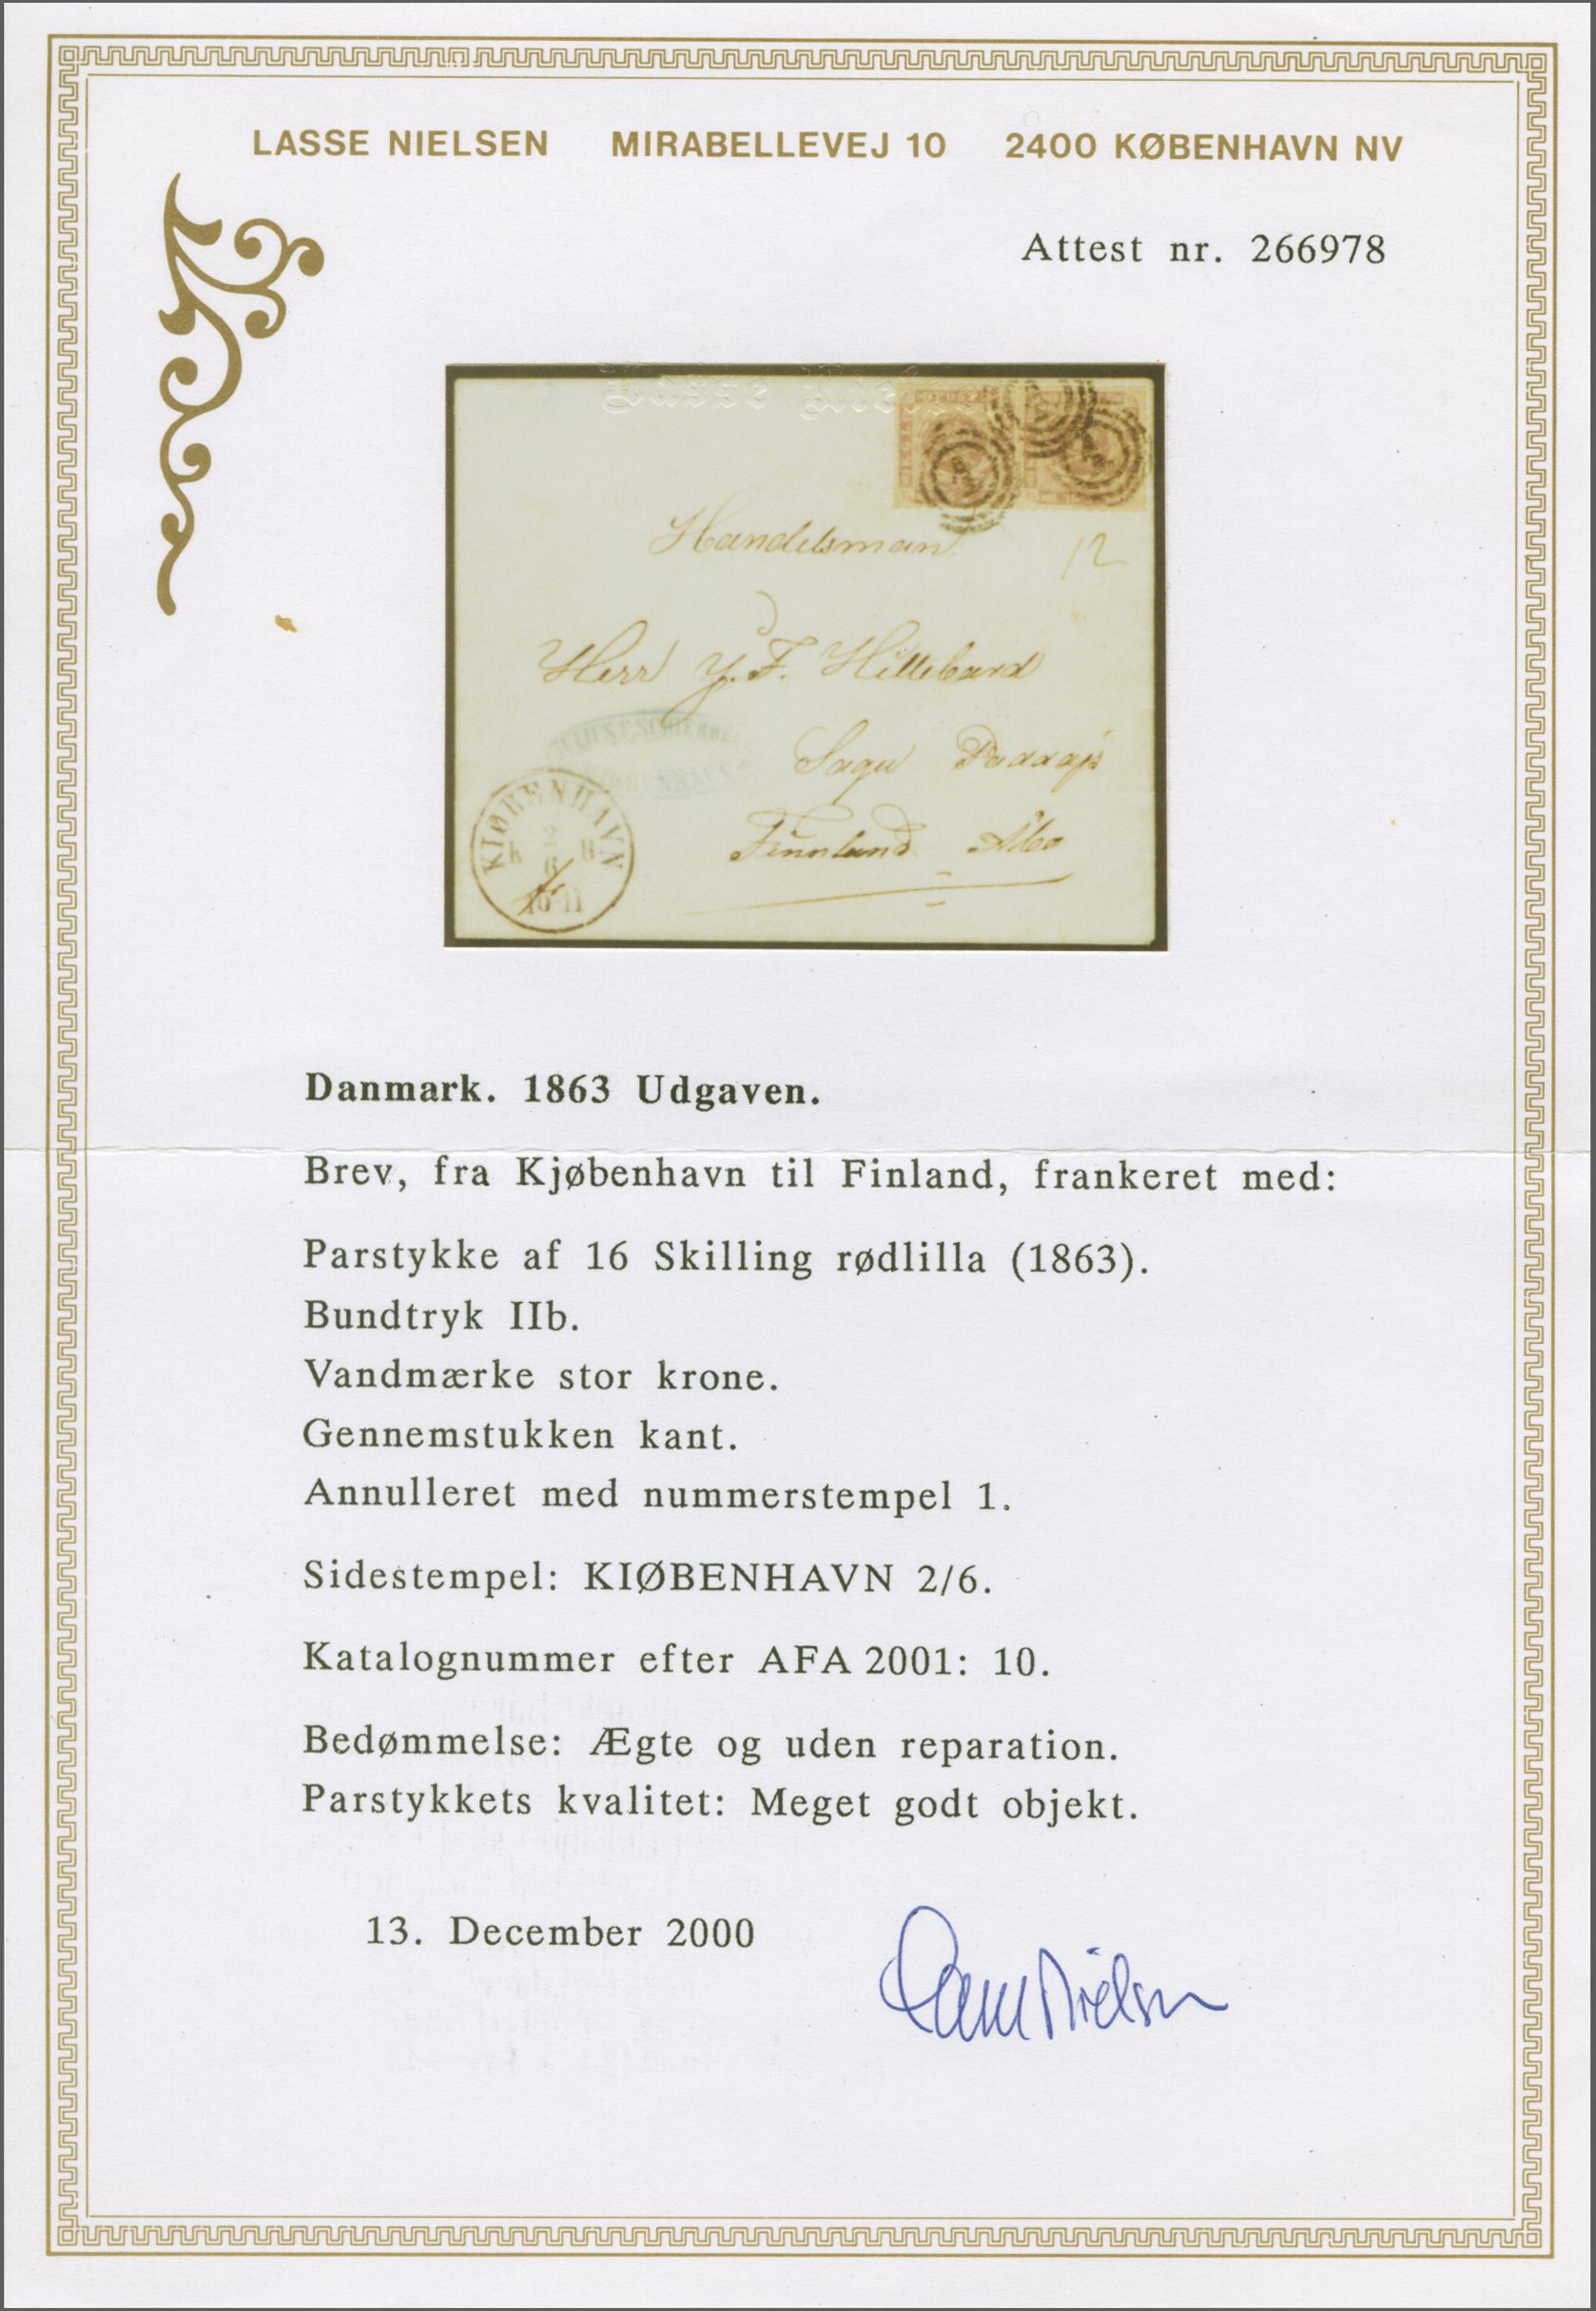 LASSE NIELSEN MIRABELLEVEJ 10 2400 KØBENHAVN NV
Attest nr. 266978
Handelsman
12
Herr Y. F. Hillebard
Sagu
Finnland Åbo
KIØBENHAVN
K 2 B
6
10-11
Danmark. 1863 Udgaven.
Brev, fra Kjøbenhavn til Finland, frankeret med:
Parstykke af 16 Skilling rødlilla (1863).
Bundtryk IIb.
Vandmærke stor krone.
Gennemstukken kant.
Annulleret med nummerstempel 1.
Sidestempel: KIØBENHAVN 2/6.
Katalognummer efter AFA 2001: 10.
Bedømmelse: Ægte og uden reparation.
Parstykkets kvalitet: Meget godt objekt.
13. December 2000